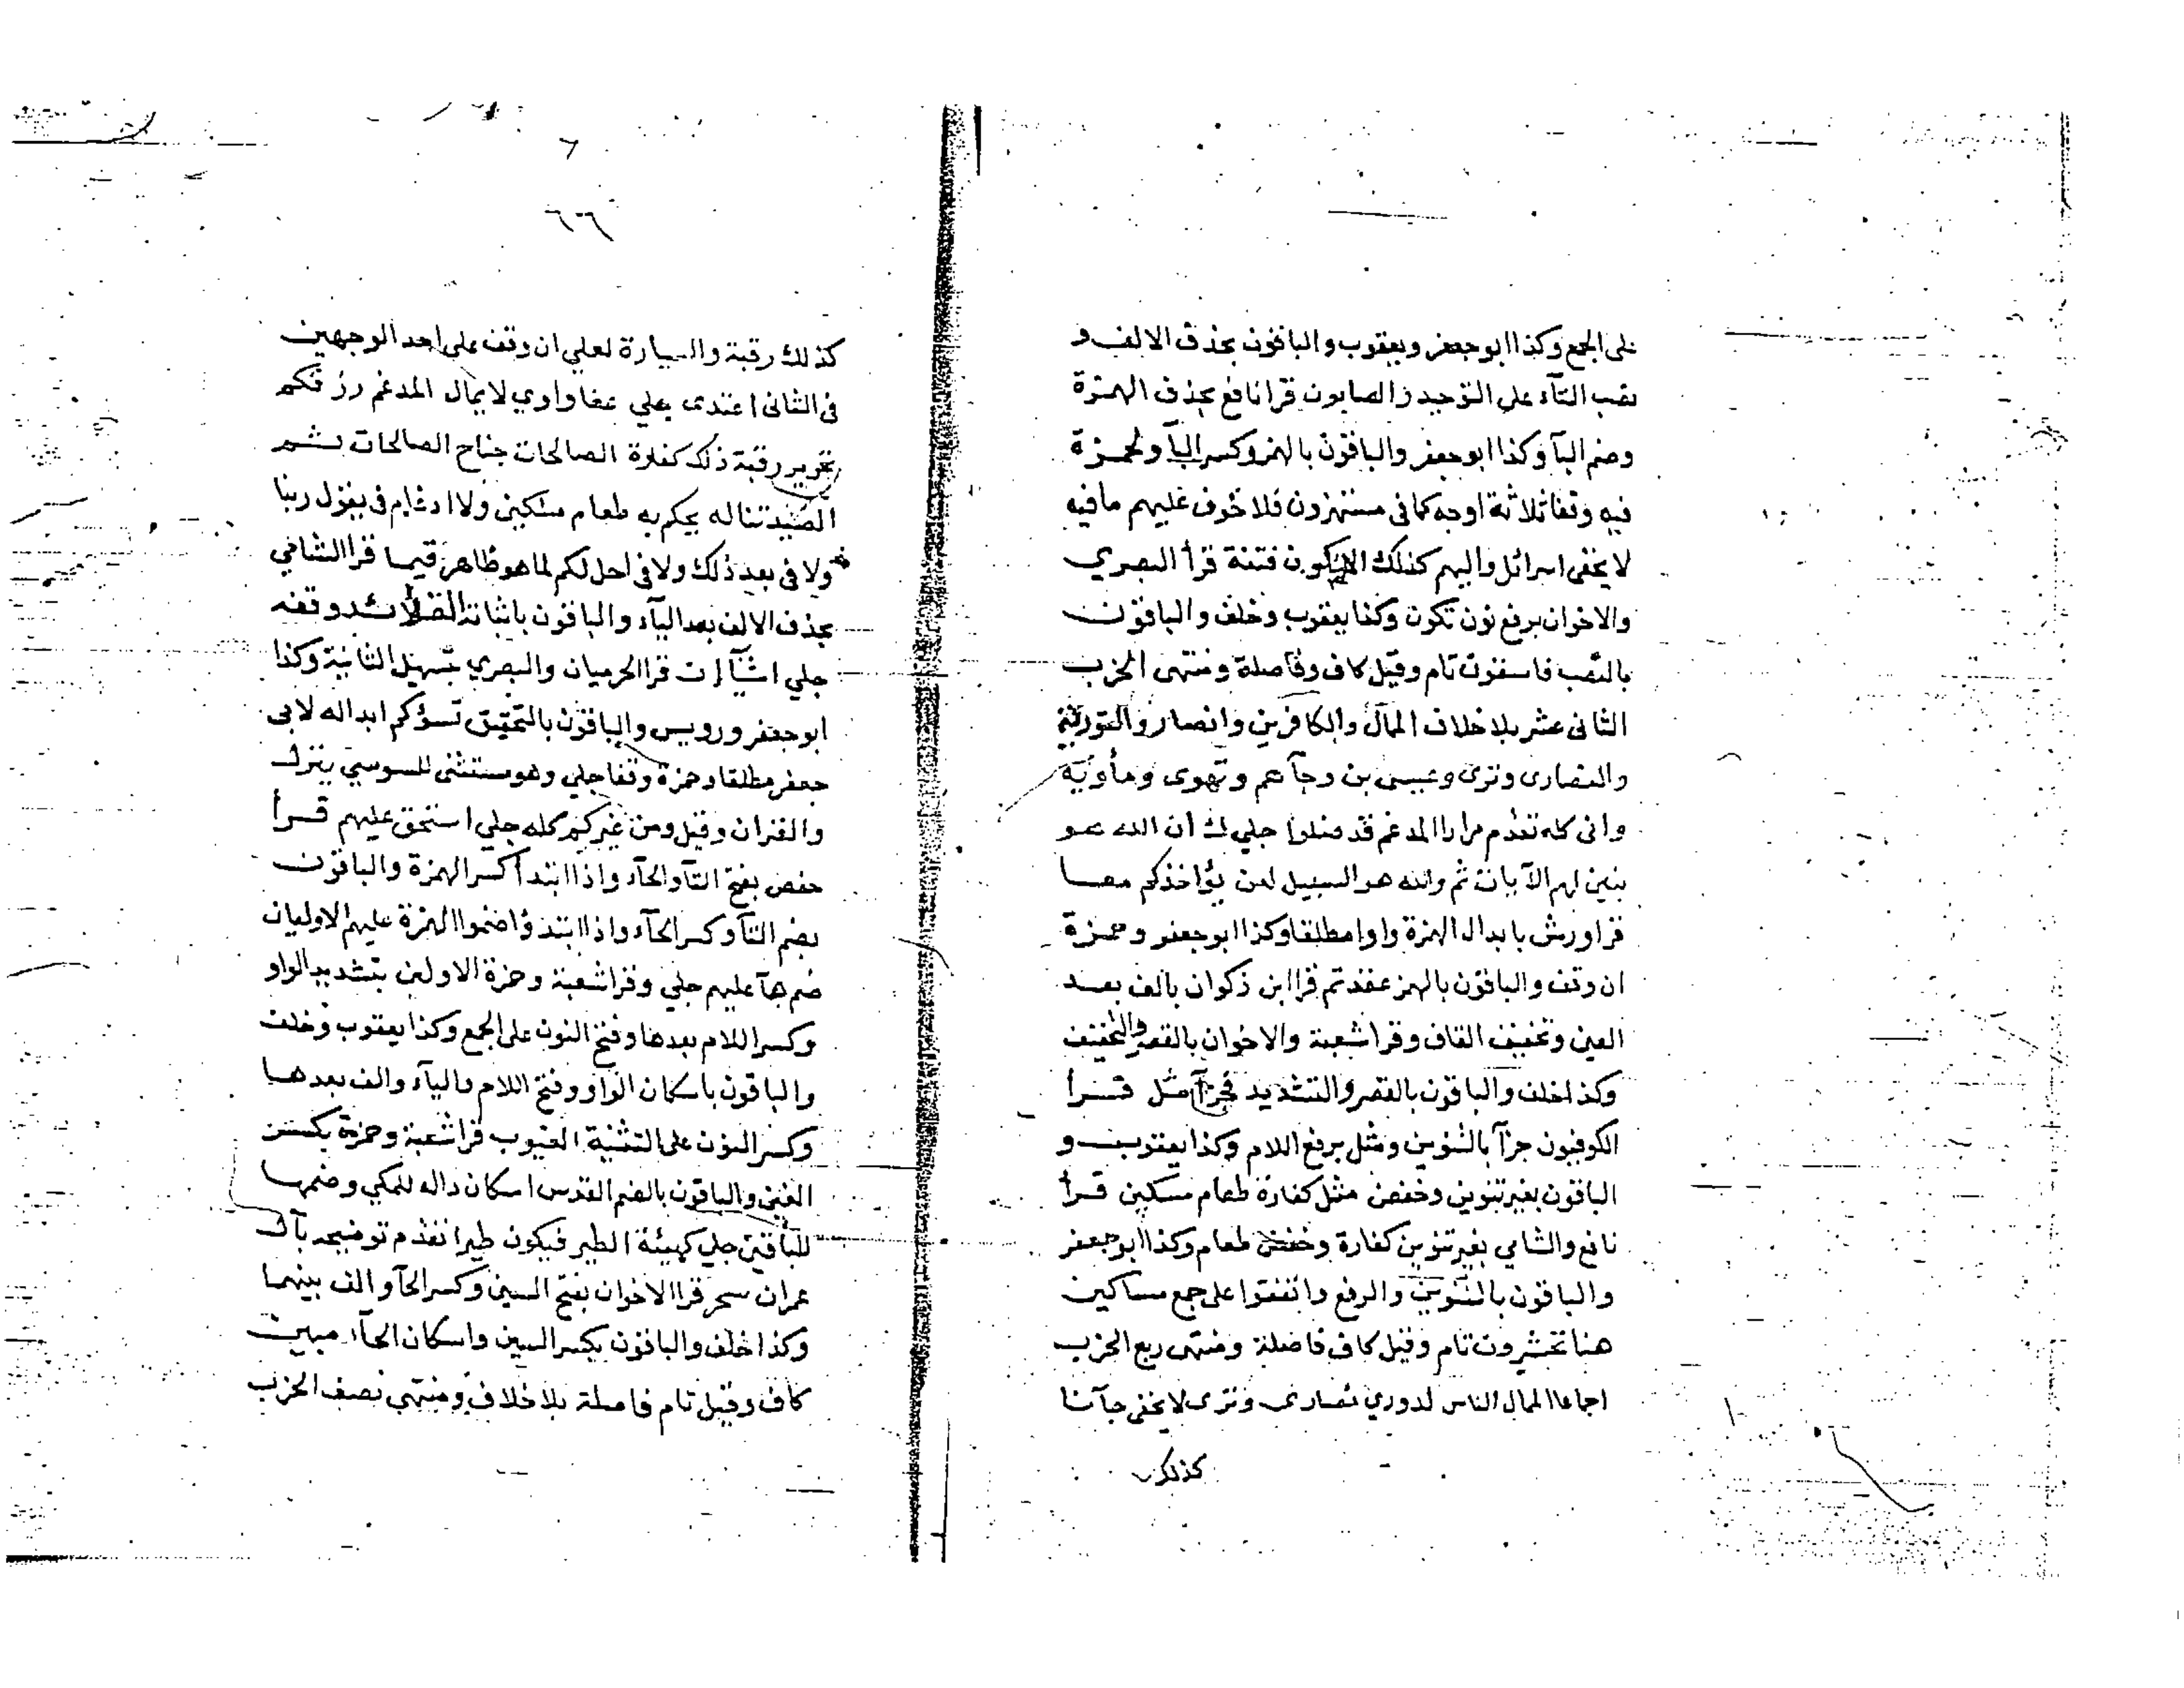 على الجمع وكذا ابو جعفر ويعقوب والباقون بحذف الالف و
نصب التآء على التوحيد والصابون قرا نافع بحذف الهمزة
وضم البآ وكذا ابو جعفر والباقون بالهمز وكسر البآ ولحمزة
فيه وقفا ثلاثة اوجه كما فى مستهزون فلا خوف عليهم ما فيه
لا يخفى اسرائل واليهم كذلك الا تكون فتنة قرأ البصري
والاخوان برفع نون تكون وكذا يعقوب وخلف والباقون
بالنصب فاسقون تام وقيل كاف وفاصلة ومنتهى الحزب
الثانى عشر بلا خلاف الممال والكافرين وانصار والتورية
والنصارى وترى وعيسى بن وجآءهم وتهوى ومأويه
وانى كله تقدم مرارا المدغم قد ضلوا جلي ك ان الله هو
نبين لهم الآيات ثم والله هو السبيل لعن يؤاخذكم معا
قرا ورش بابدال الهمزة واوا مطلقا وكذا ابو جعفر وحمزة
ان وقف والباقون بالهمز عقدتم قرا ابن ذكوان بالف بعد
العين وتخفيف القاف وقرا شعبة والاخوان بالقصر والتخفيف
وكذا خلف والباقون بالقصر والتشديد فجزآ مثل قرأ
الكوفيون جزآ بالتنوين ومثل برفع اللام وكذا يعقوب و
الباقون بغير تنوين وخفض مثل كفارة طعام مسكين قرأ
نافع والشامي بغير تنوين كفارة وخفض طعام وكذا ابو جعفر
والباقون بالتنوين والرفع واتفقوا على جمع مساكين
هنا تحشرون تام وقيل كاف فاصلة ومنتهى ربع الحزب
اجماعا الممال الناس لدوري نصارى وترى لا يخفى جآءنا
كذلك
٦
٦٦
كذلك رقبة والسيارة لعلي ان وقف على احد الوجهين
فى الثانى اعتدى بعلي عفا واوي لا يمال المدغم رزقكم
تحرير رقبة ذلك كفارة الصالحات جناح الصالحات ثم
الصيد تناله يحكم به طعام مسكين ولا ادغام فى يقول ربنا
ولا فى بعد ذلك ولا فى احل لكم لما هو ظاهر قيما قرا الشامي
بحذف الالف بعد اليآء والباقون باثباتها القلائد وقفه
جلي اشيآء ان قرا الحرميان والبصري بتسهيل الثانية وكذا
ابو جعفر ورويس والباقون بالتحقيق تسؤكم ابداله لابى
جعفر مطلقا وحمزة وقفا جلي وهو مستثنى للسوسي ينزل
والقران وقيل ومن غيركم كله جلي استحق عليهم قرأ
حفص بفتح التآ والحآء واذا ابتدأ كسر الهمزة والباقون
بضم التآ وكسر الحآء واذا ابتدؤا ضموا الهمزة عليهم الاوليان
ضم هآ عليهم جلي وقرا شعبة وحمزة الاولين بتشديد الواو
وكسر اللام بعدها وفتح النون على الجمع وكذا يعقوب وخلف
والباقون باسكان الواو وفتح اللام واليآء والف بعدها
وكسر النون على التثنية الغيوب قرا شعبة وحمزة بكسر
الغين والباقون بالضم القدس اسكان داله للمكي وضمها
للباقين جلي كهيئة الطير فيكون طيرا تقدم توضيحه بآل
عمران سحر قرا الاخوان بفتح السين وكسر الحآ والف بينهما
وكذا خلف والباقون بكسر السين واسكان الحآء مبين
كاف وقيل تام فاصلة بلا خلاف ومنتهى نصف الحزب